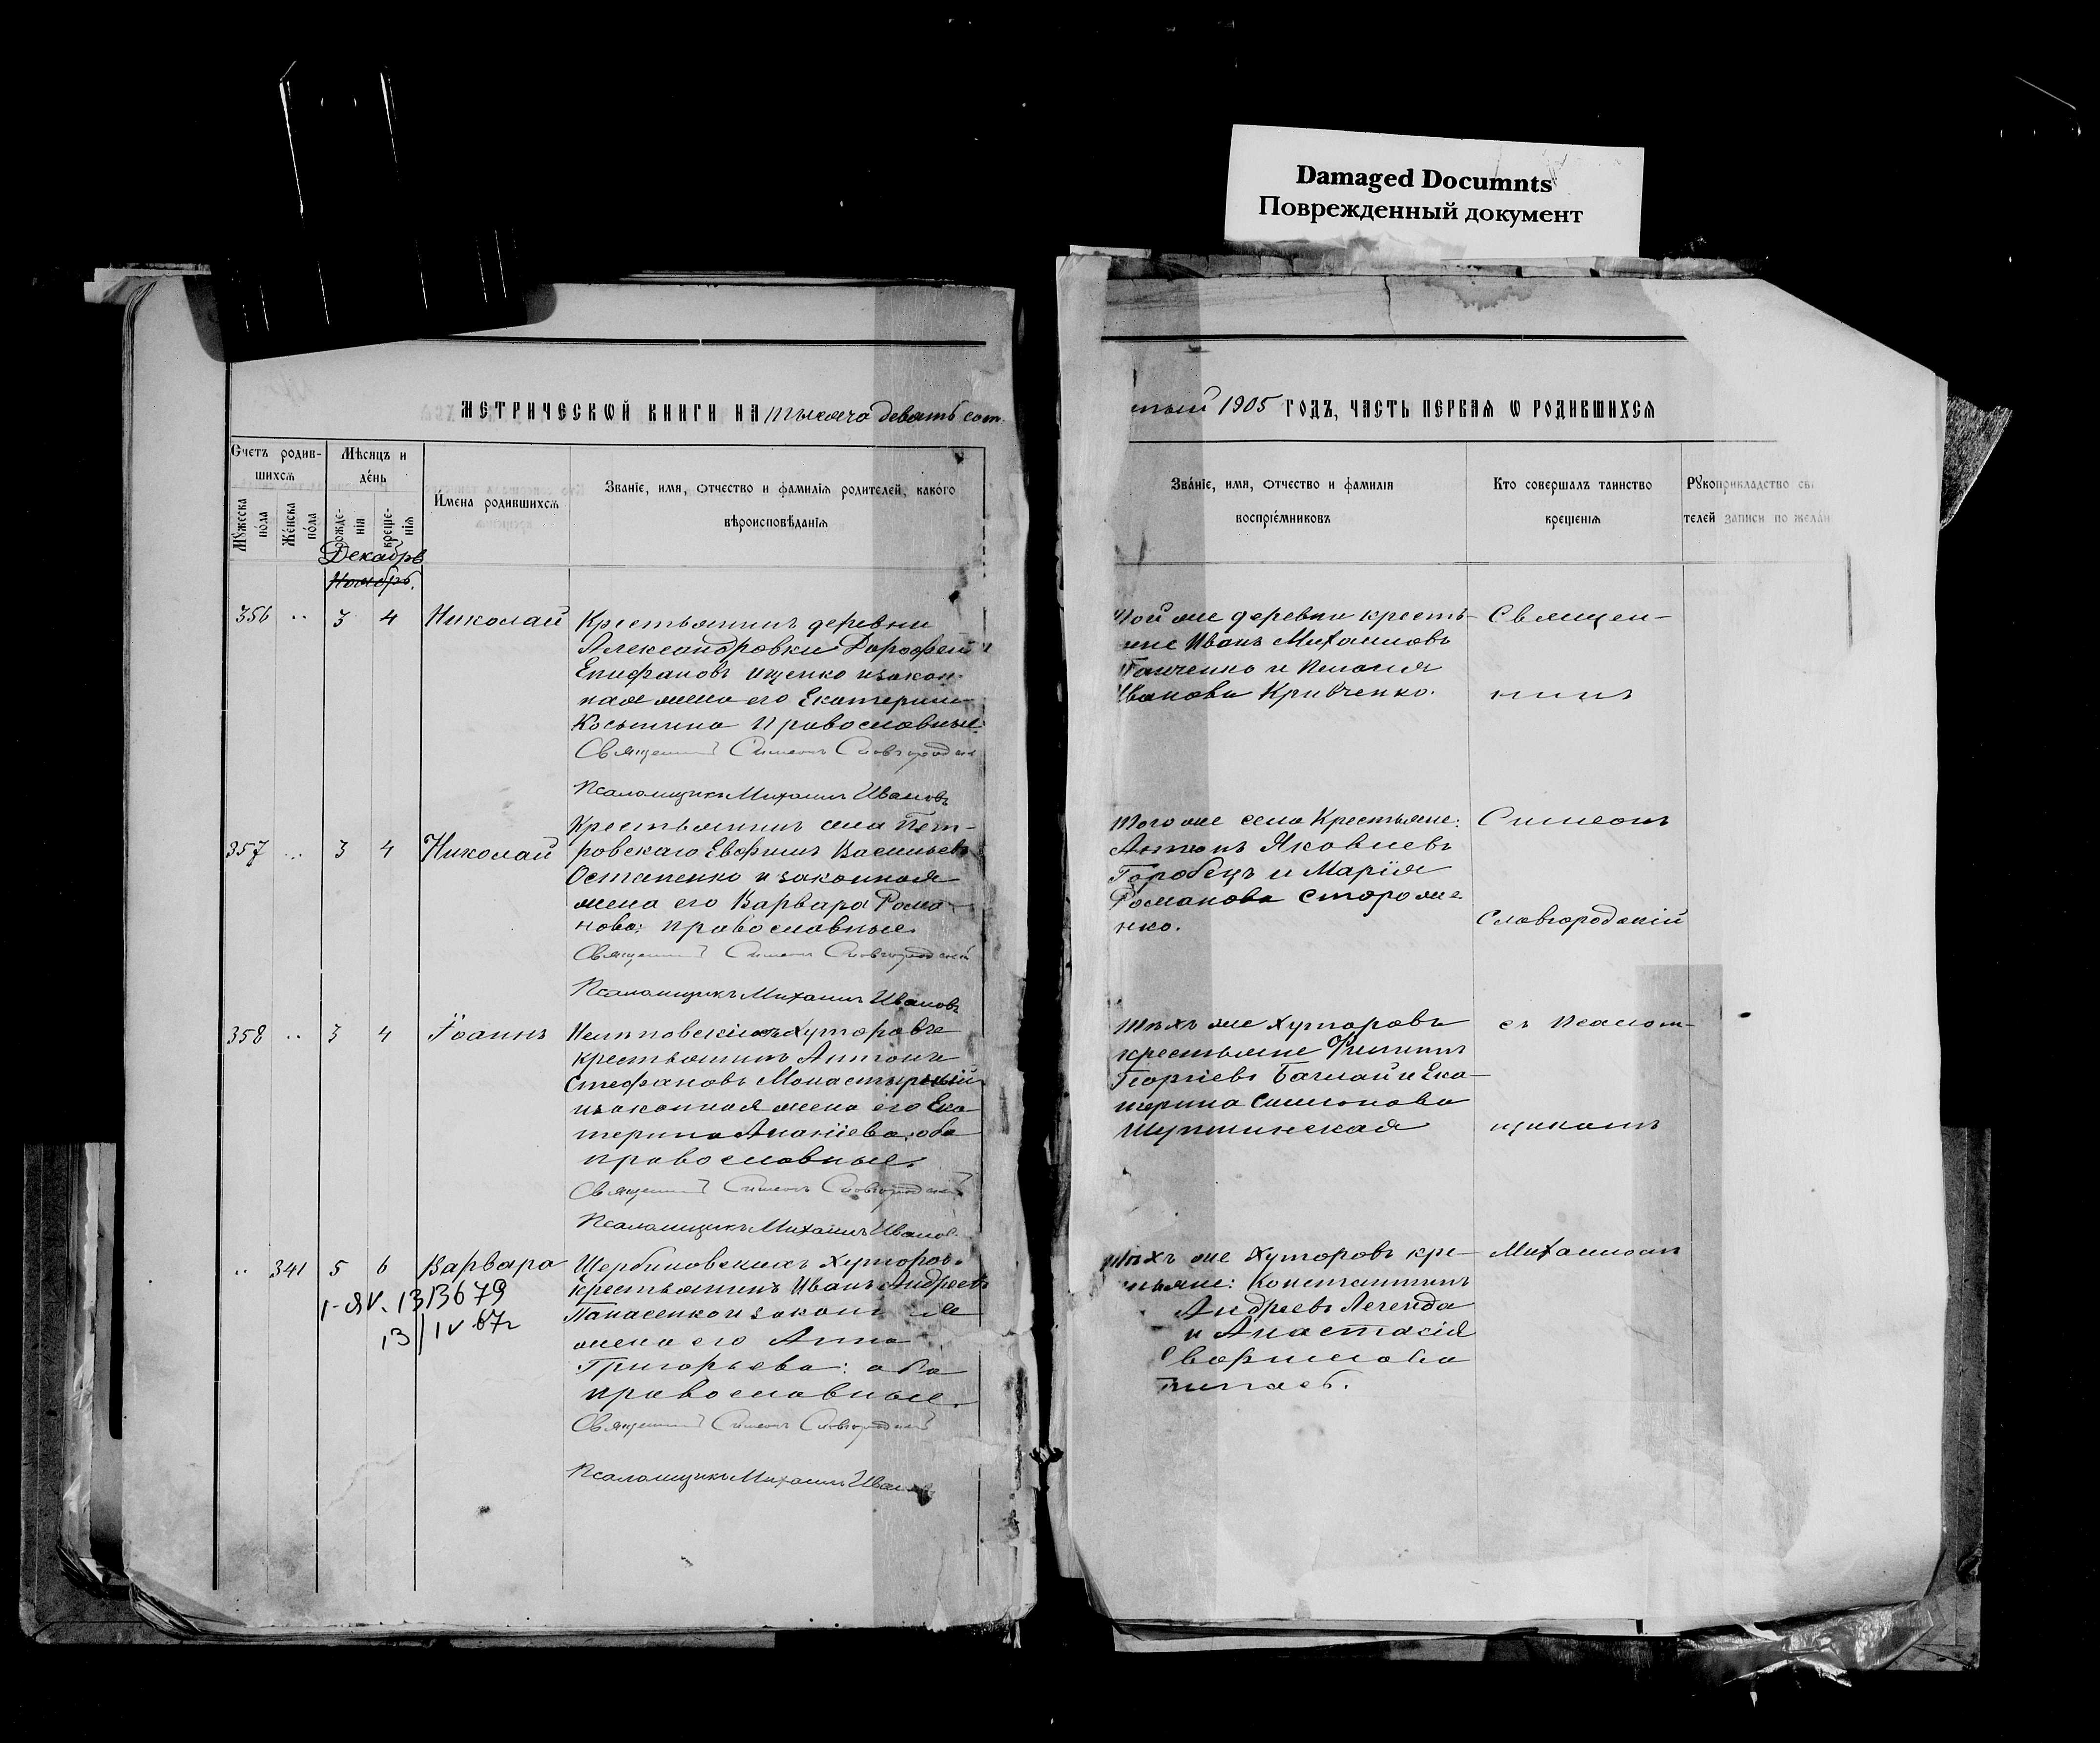 Damaged Documnts
Поврежденный документ
МЕТРИЧЕСКОЙ КНИГИ НА тысяча девять сот
тый 1905 ГОДЪ, ЧАСТЬ ПЕРВАЯ О РОДИВШИХСЯ
Счетъ родив-
шихся
Мужеска пола
Женска пола
Мѣсяцъ и
день
рожде-
нія
креще-
нія
Имена родившихся
Званіе, имя, отчество и фамилія родителей, какого
вѣроисповѣданія
Званіе, имя, отчество и фамилія
воспріемниковъ
Кто совершалъ таинство
крещенія
Рукоприкладство сви
телей записи по желан
Декабрь
Ноябрь.
356 " 3 4 Николай
Крестьянинъ деревни
Александровки Дорофей
Епифановъ Ищенко и закон-
ная жена его Екатерина
Косьмина Православные.
Священникъ Симеонъ Славгородскій
Псаломщикъ Михаилъ Ивановъ
Той же деревни кресть-
яне Иванъ Михаиловъ
и Пелагія
Иванова Кривченко.
Священ-
никъ
357 " 3 4 Николай
Крестьянинъ села Пет-
ровскаго Евфимъ Васильевъ
Остапенко и законная
жена его Варвара Рома-
нова: православные.
Священникъ Симеонъ Славгородскій
Псаломщикъ Михаилъ Ивановъ
Того же села Крестьяне:
Антонъ Яковлевъ
Горобецъ и Марія
Романова Стороже
нко.
Симеонъ
Славгородскій
358 " 3 4 Іоаннъ
хуторовъ
крестьянинъ Антонъ
Стефановъ Монастырный
и законная жена его Ека
терина Ананіева, оба
православные.
Священникъ Симеонъ Славгородскій
Псаломщикъ Михаилъ Иванов
Тѣхъ же хуторовъ
крестьяне Филиппъ
Георгіевъ и Ека-
терина Симеонова
съ Псалом-
щикомъ
" 341 5 6 Варвара
1-ЯV. 1313679
13/IV 67г
Щербиновскихъ хуторовъ
Крестьянинъ Иванъ Андреевъ
Панасенко и законная
жена его Анна
Григорьева: оба
православные.
Священникъ Симеонъ Славгородскій
Псаломщикъ Михаилъ Ивановъ
Тѣхъ же хуторовъ кре-
стьяне: Константинъ
Андреевъ Легейда
и Анастасія
Евфимова
Михаиломъ